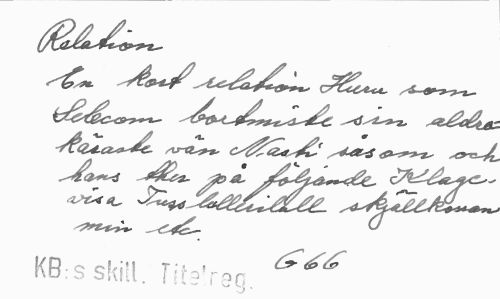 Relation
En kort relation Huru som
Selecom bortmiste sin aldra
käraste vän Nasti såsom och
hans ther på följande Klage-
visa Tusslullerilull skjällkonan
min etc.
G66
KB:s skill. Titelreg.